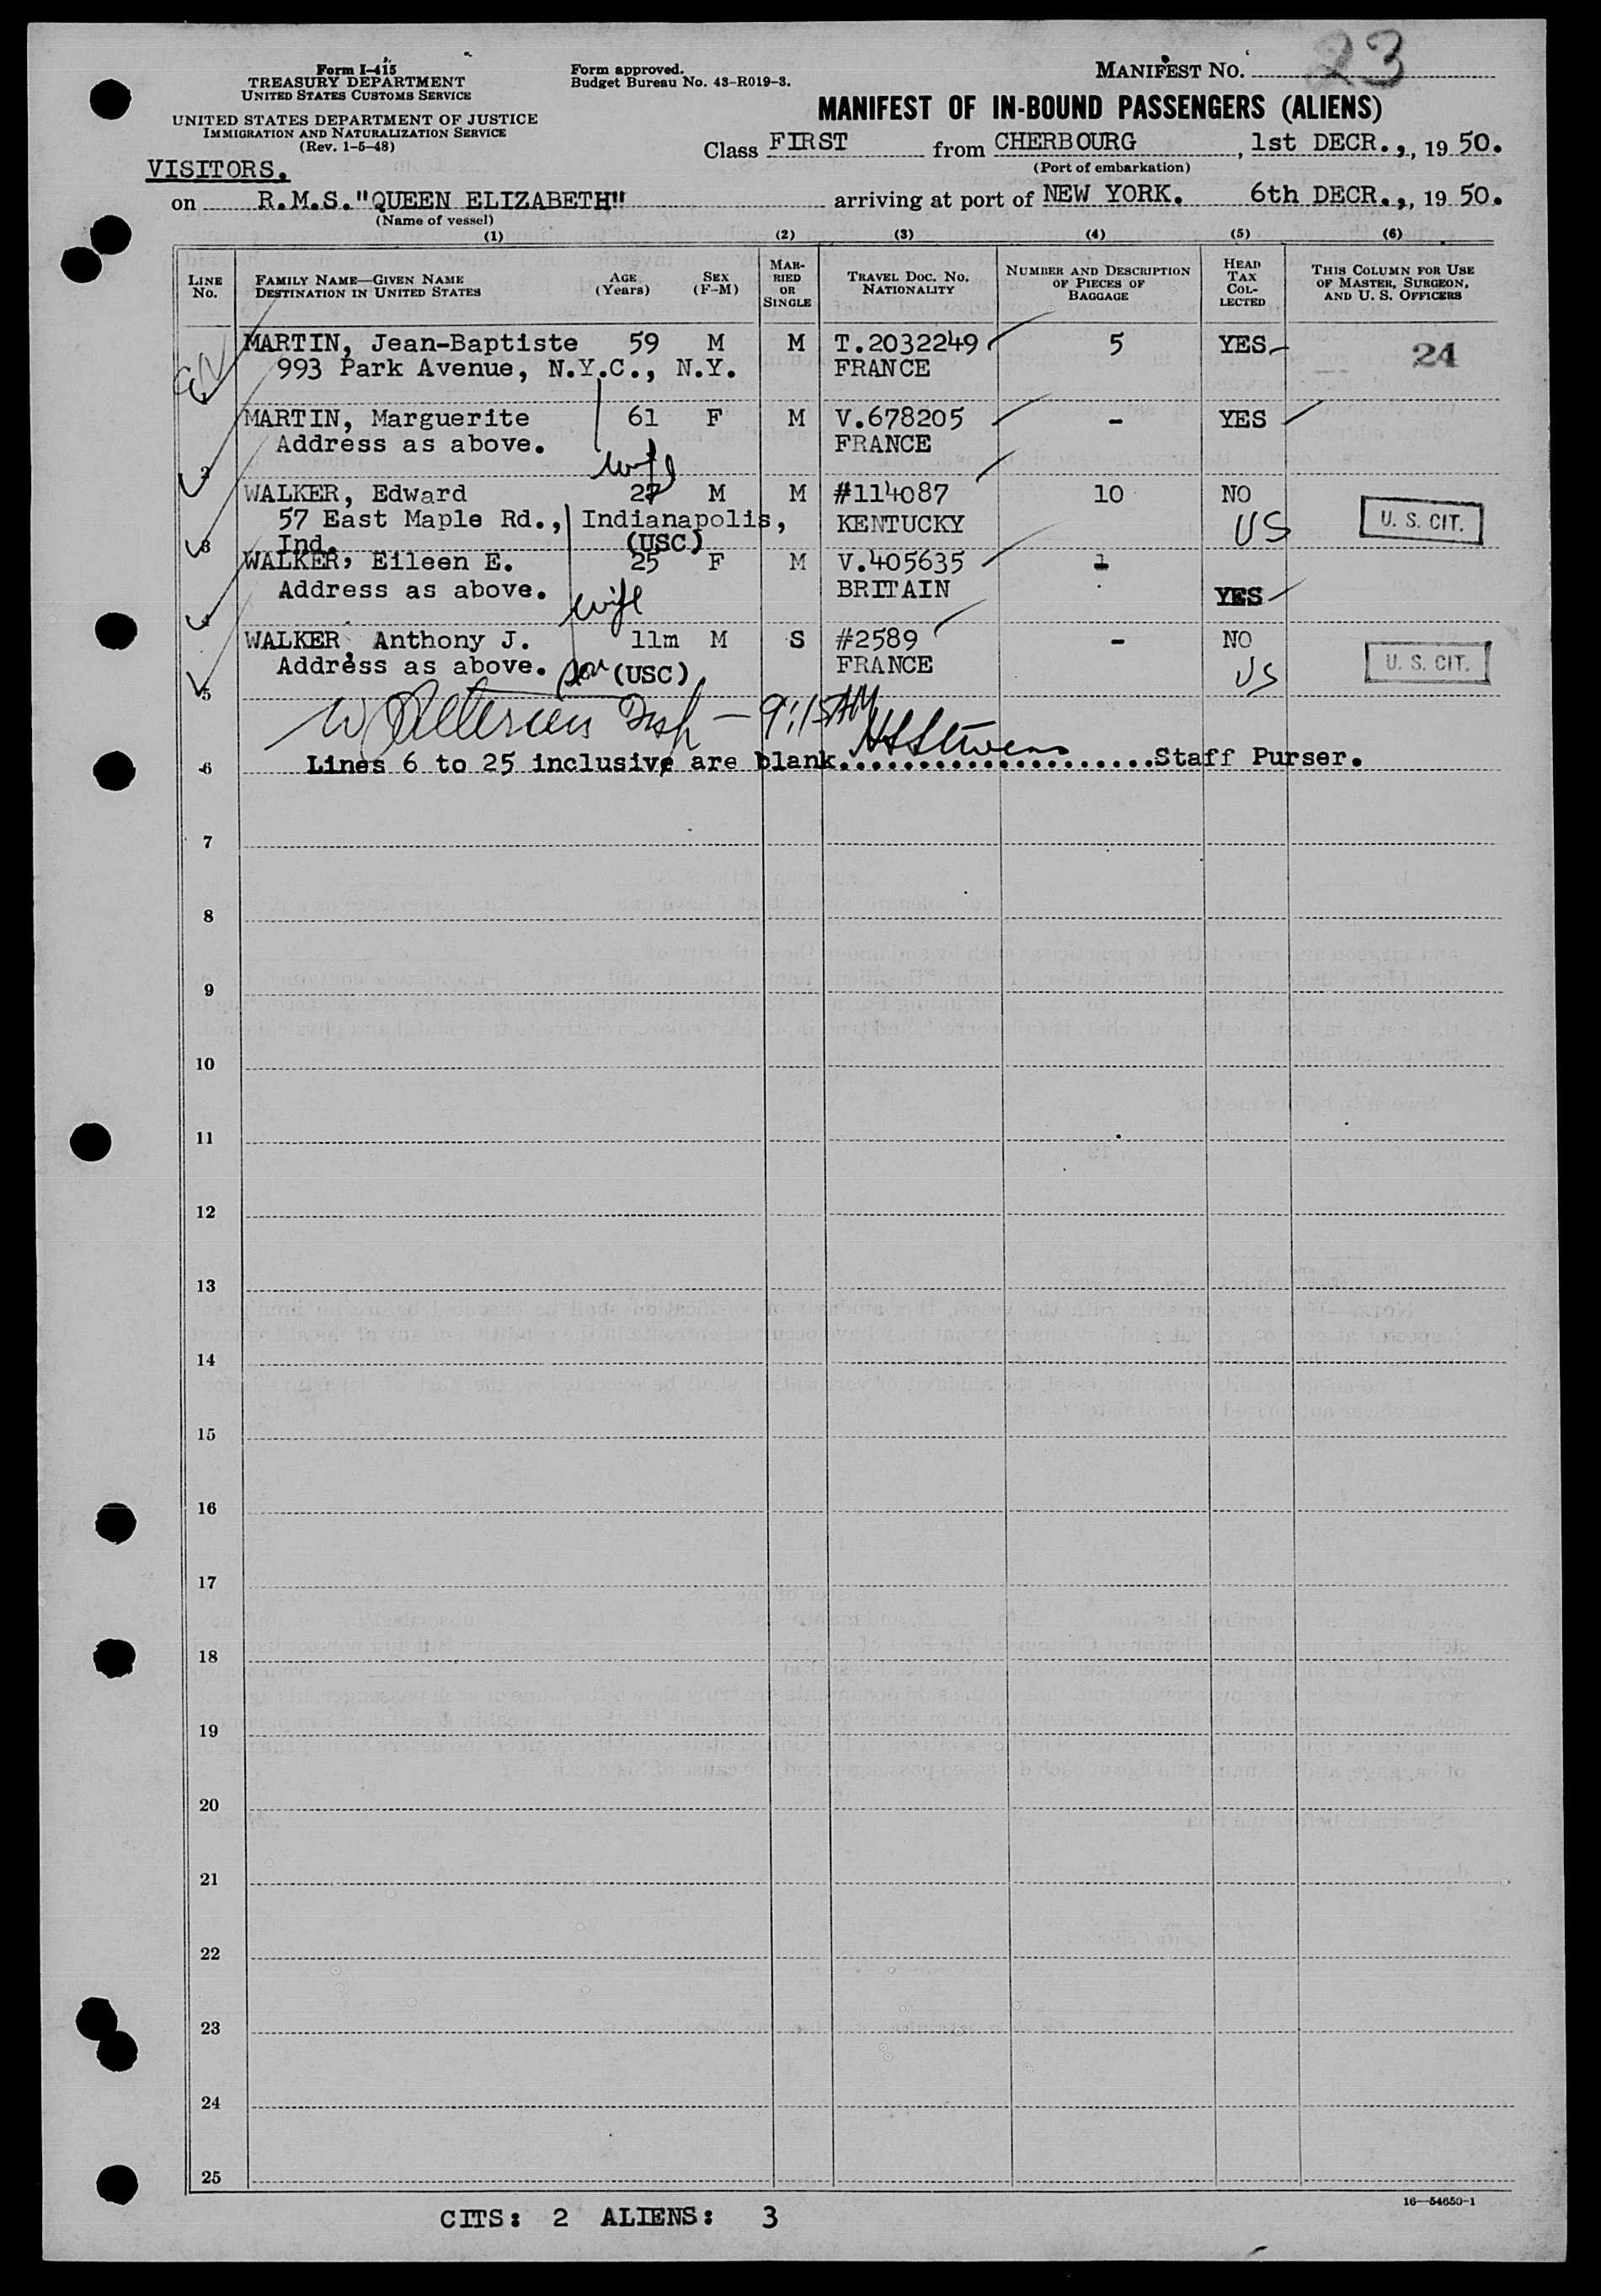 Form I-415
TREASURY DEPARTMENT
UNITED STATES CUSTOMS SERVICE
UNITED STATES DEPARTMENT OF JUSTICE
IMMIGRATION AND NATURALIZATION SERVICE
(Rev. 1-5-48)
Form approved.
Budget Bureau No. 43-R019-3.
MANIFEST NO. 23
MANIFEST OF IN-BOUND PASSENGERS (ALIENS)
Class FIRST from CHERBOURG, 1st DECR., 19 50.
(Port of embarkation)
VISITORS.
on R.M.S."QUEEN ELIZABETH" arriving at port of NEW YORK. 6th DECR., 19 50.
(Name of vessel)
(1) (2) (3) (4) (5) (6)
LINE No. FAMILY NAME—GIVEN NAME DESTINATION IN UNITED STATES AGE (Years) SEX (F-M) MARRIED OR SINGLE TRAVEL DOC. NO. NATIONALITY NUMBER AND DESCRIPTION OF PIECES OF BAGGAGE HEAD TAX COLLECTED THIS COLUMN FOR USE OF MASTER, SURGEON, AND U. S. OFFICERS
MARTIN, Jean-Baptiste 59 M M T.2032249 5 YES 24
993 Park Avenue, N.Y.C., N.Y. FRANCE
MARTIN, Marguerite 61 F M V.678205 - YES
Address as above. FRANCE
2 wife
WALKER, Edward 27 M M #114087 10 NO
57 East Maple Rd., Indianapolis, KENTUCKY US U. S. CIT.
3 Ind. (USC)
WALKER, Eileen E. 25 F M V.405635 1
Address as above. BRITAIN YES
4 wife
WALKER, Anthony J. 11m M S #2589 - NO
Address as above. son (USC) FRANCE US U. S. CIT.
5
9:15 AM
6 Lines 6 to 25 inclusive are blank....................Staff Purser.
7
8
9
10
11
12
13
14
15
16
17
18
19
20
21
22
23
24
25
16—54650-1
CITS: 2 ALIENS: 3